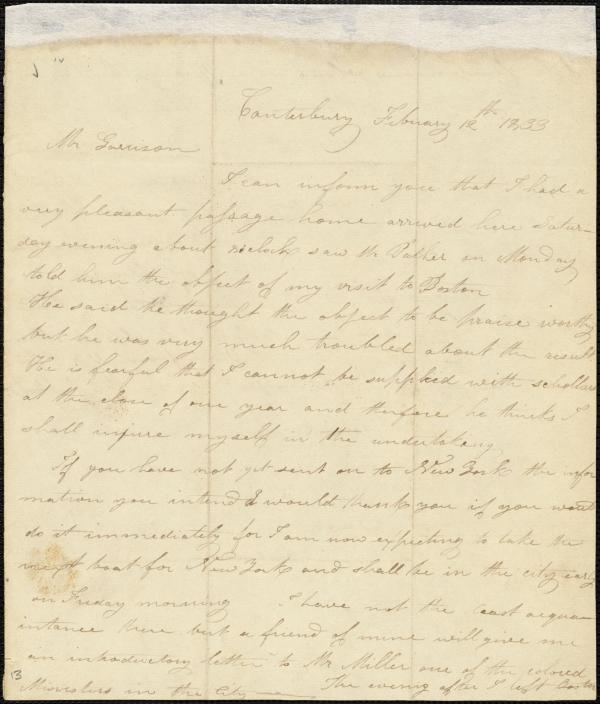 Canterbury February 12th 1833
Mr Garrison
I can inform you that I had a
very pleasant passage home arrived here Satur-
day evening about oclock saw Mr Packer on Monday
told him the object of my visit to Boston
He said he thought the object to be praise worthy
but he was very much troubled about the result
He is fearful that I cannot be supplied with schollars
at the close of one year and therefore he thinks I
shall injure myself in the undertaking
If you have not yet sent on to New York the infor
mation you intend I would thank you if you would
do it immediately for I am now expecting to take the
next boat for New York and shall be in the city early
on Friday morning I have not the least acqua-
intance there but a friend of mine will give me
an introductory letter to Mr Miller one of the colored
13
Ministers in the City — The evening after I left Boston